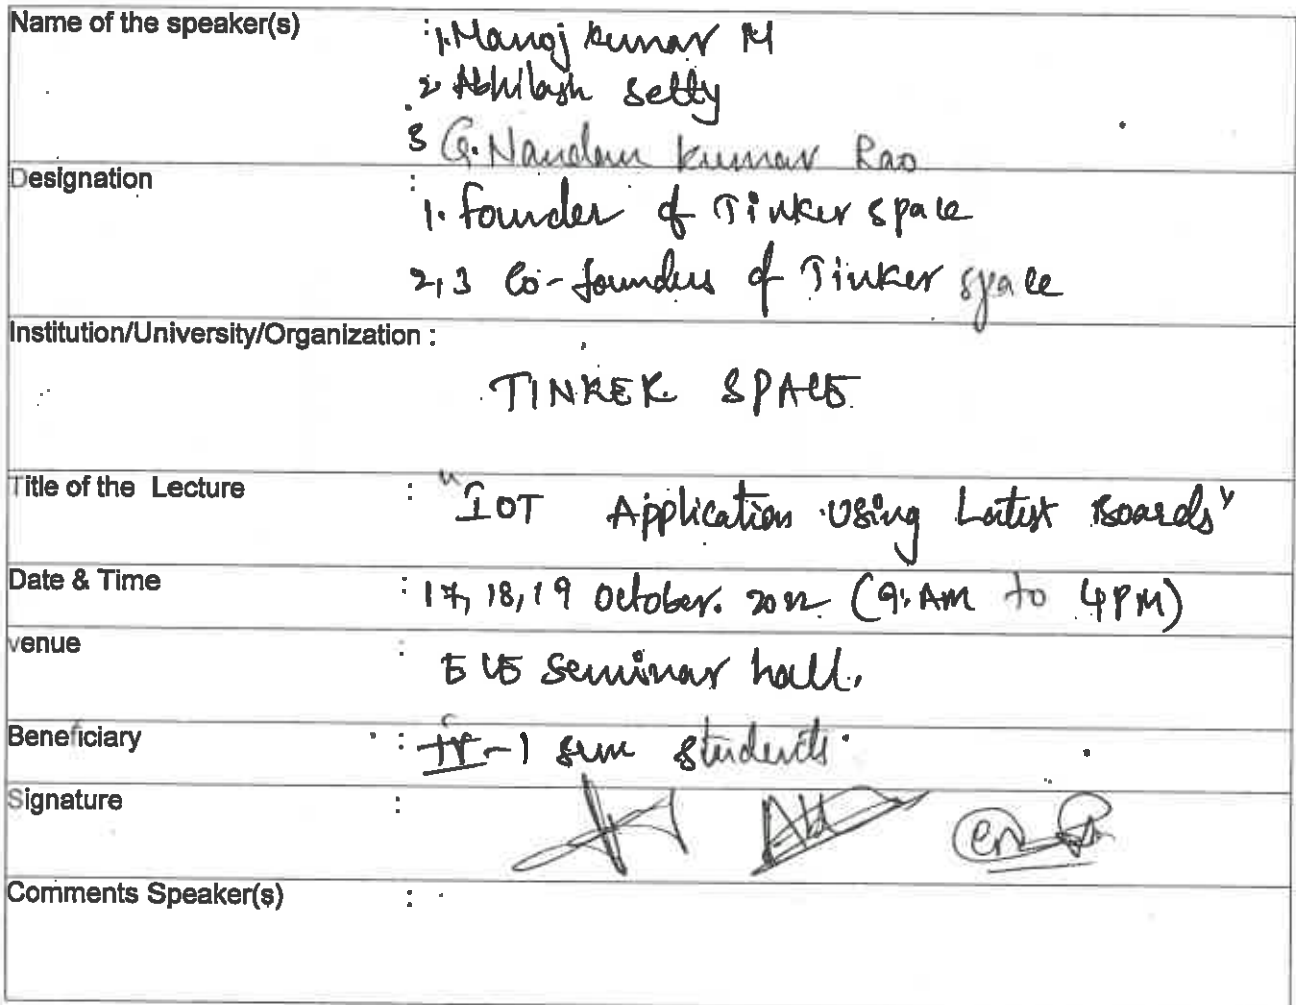 Name of the speaker(s) : 1. Manoj kumar M
2. Abhilash Setty
3 G. Nandan kumar Rao
Designation :
1. Founder of Tinker space
2,3 Co-founders of Tinker space
Institution/University/Organization :
TINKER SPACE
Title of the Lecture : "IOT Application Using Latest Boards"
Date & Time : 17, 18, 19 October. 2022 (9: AM to 4PM)
venue : ECE Seminar hall.
Beneficiary : IV-1 sem students.
Signature :
Comments Speaker(s) :